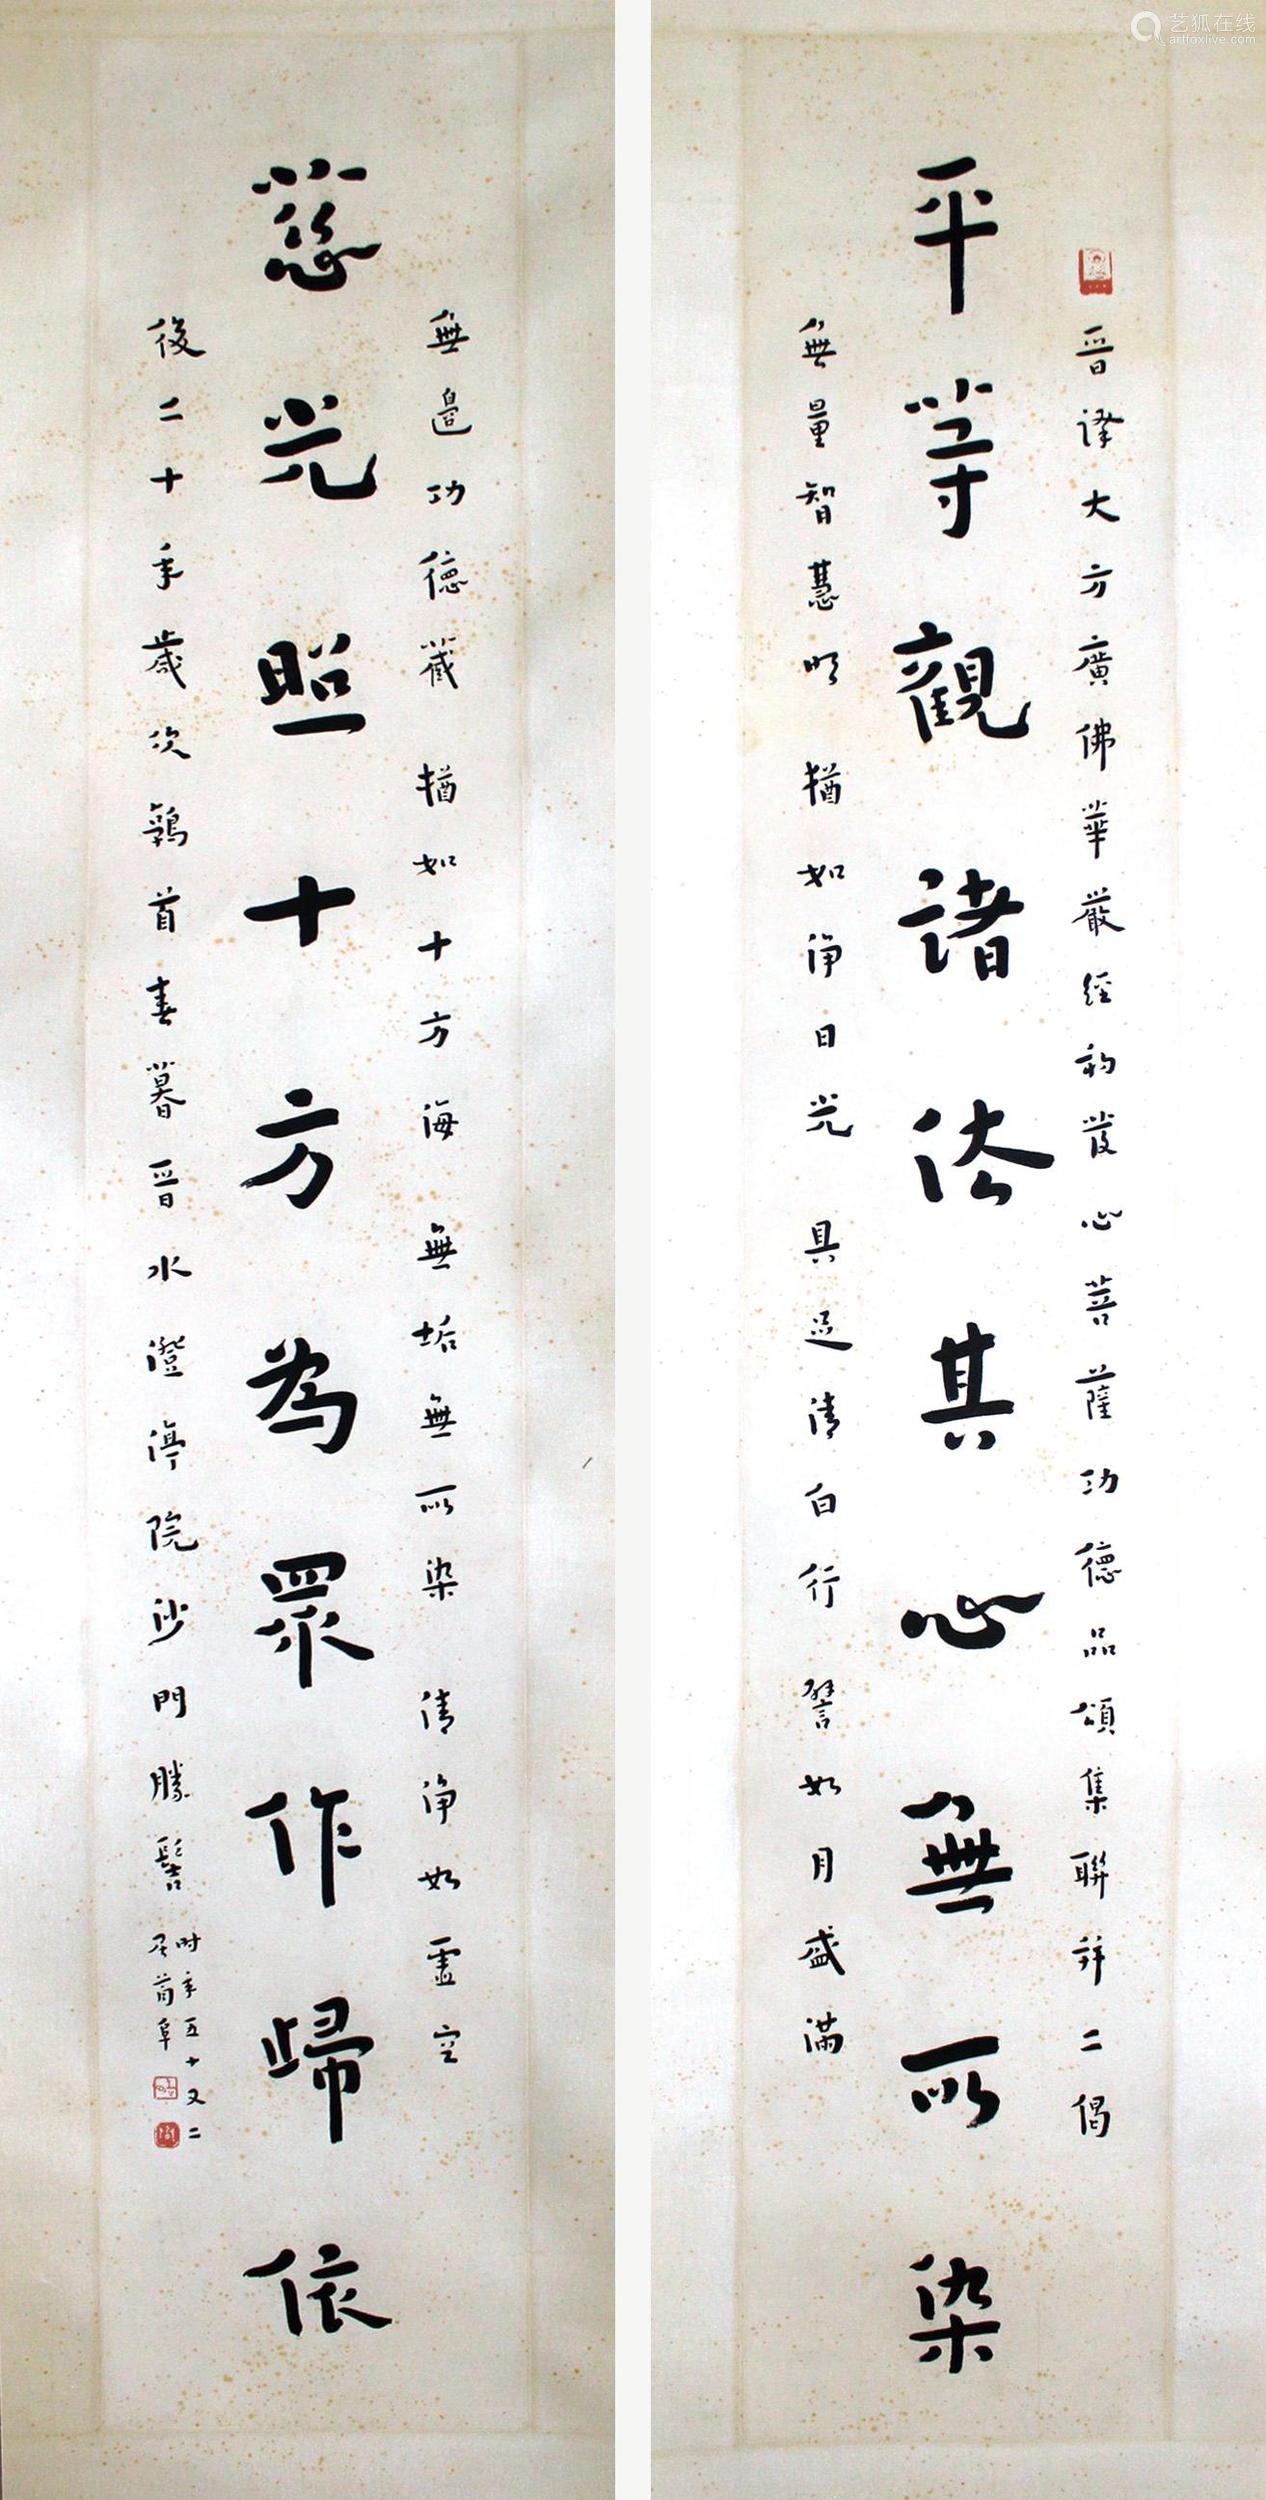 艺狐在线
artfoxlive.com
晉譯大方廣佛華嚴經初發心菩薩功德品頌集聯并二偈
平等觀諸法其心無所染
無量智慧明 猶如淨日光 具足清白行 譬如月盛滿
無邊功德藏 猶如十方海 無垢無所染 清淨如虛空
慈光照十方為眾作歸依
後二十年歲次鶉首春暮晉水澄渟院沙門勝髻
時年五十又二
居 阜